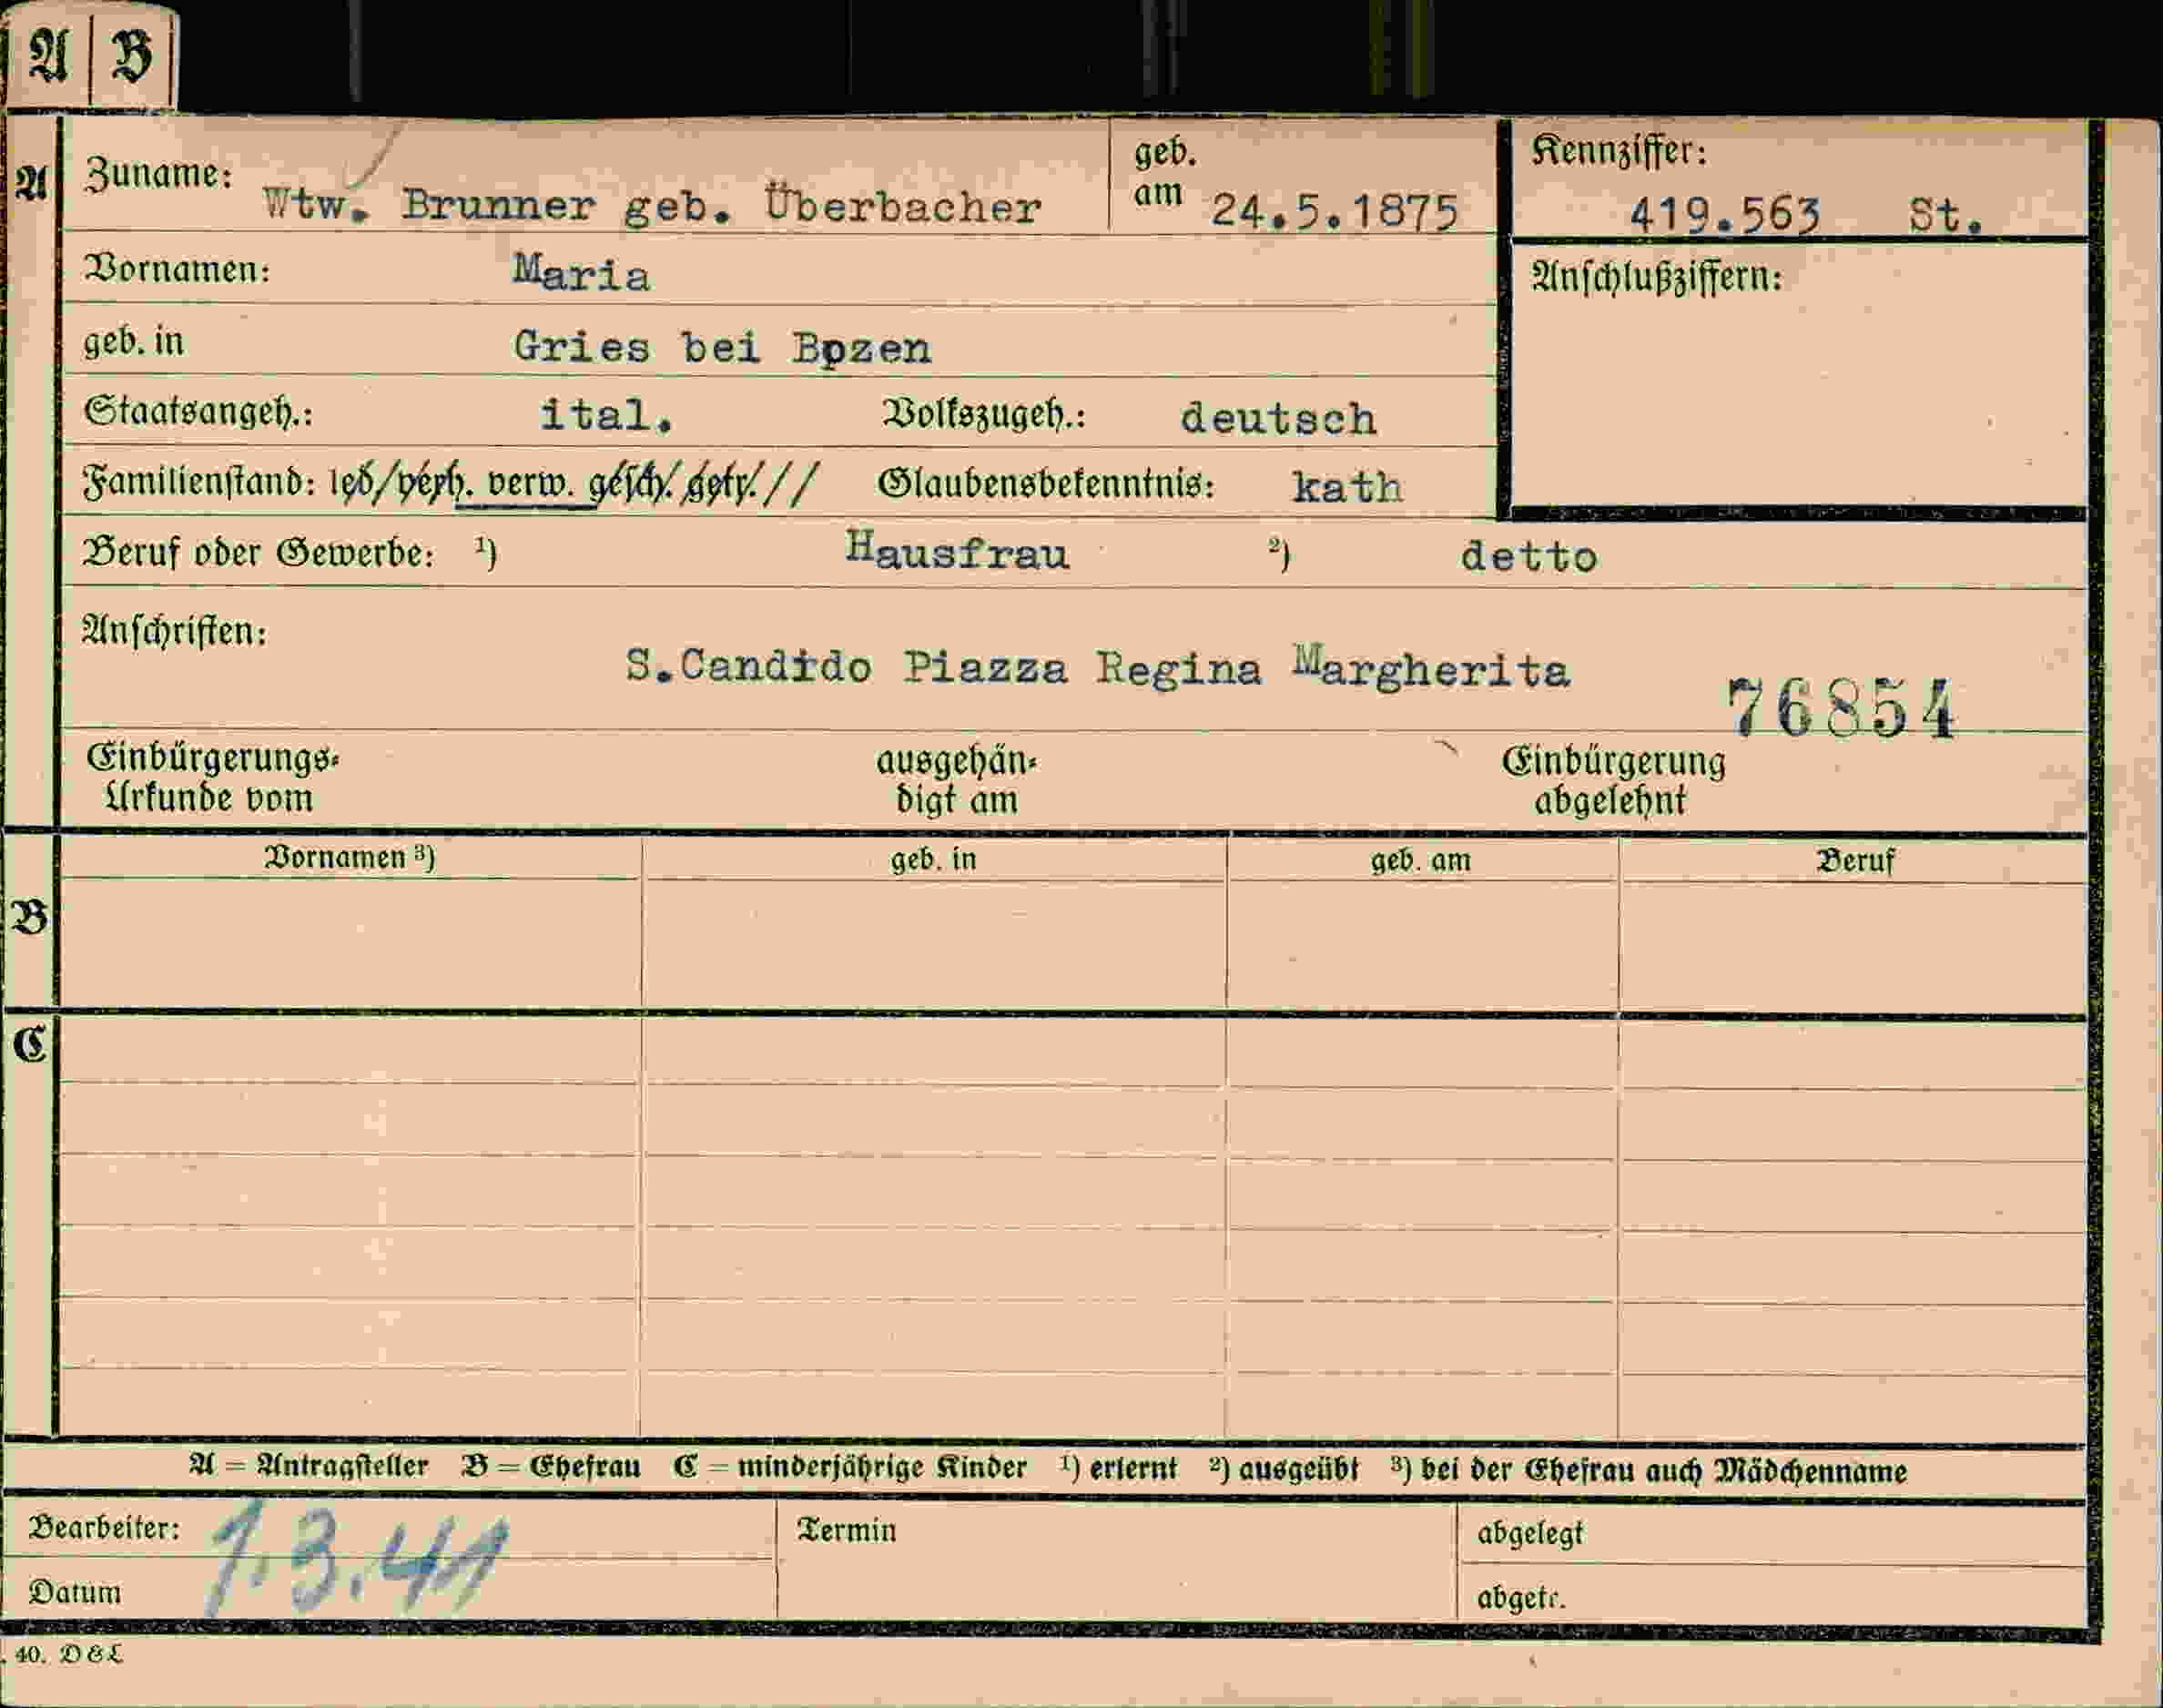 A B
A Zuname: Wtw. Brunner geb. Überbacher geb. am 24.5.1875 Kennziffer: 419.563 St.
Vornamen: Maria Anschlußziffern:
geb. in Gries bei Bozen
Staatsangeh.: ital. Volkszugeh.: deutsch
Familienstand: led/verh. verw. gesch. getr. // Glaubensbekenntnis: kath
Beruf oder Gewerbe: ¹) Hausfrau ²) detto
Anschriften: S.Candido Piazza Regina Margherita
76854
Einbürgerungs- Urkunde vom ausgehän- digt am Einbürgerung abgelehnt
Vornamen ³) geb. in geb. am Beruf
B
C
A = Antragsteller B = Ehefrau C = minderjährige Kinder ¹) erlernt ²) ausgeübt ³) bei der Ehefrau auch Mädchenname
Bearbeiter: 1.3.41 Termin abgelegt
Datum abgetr.
. 40. D & L